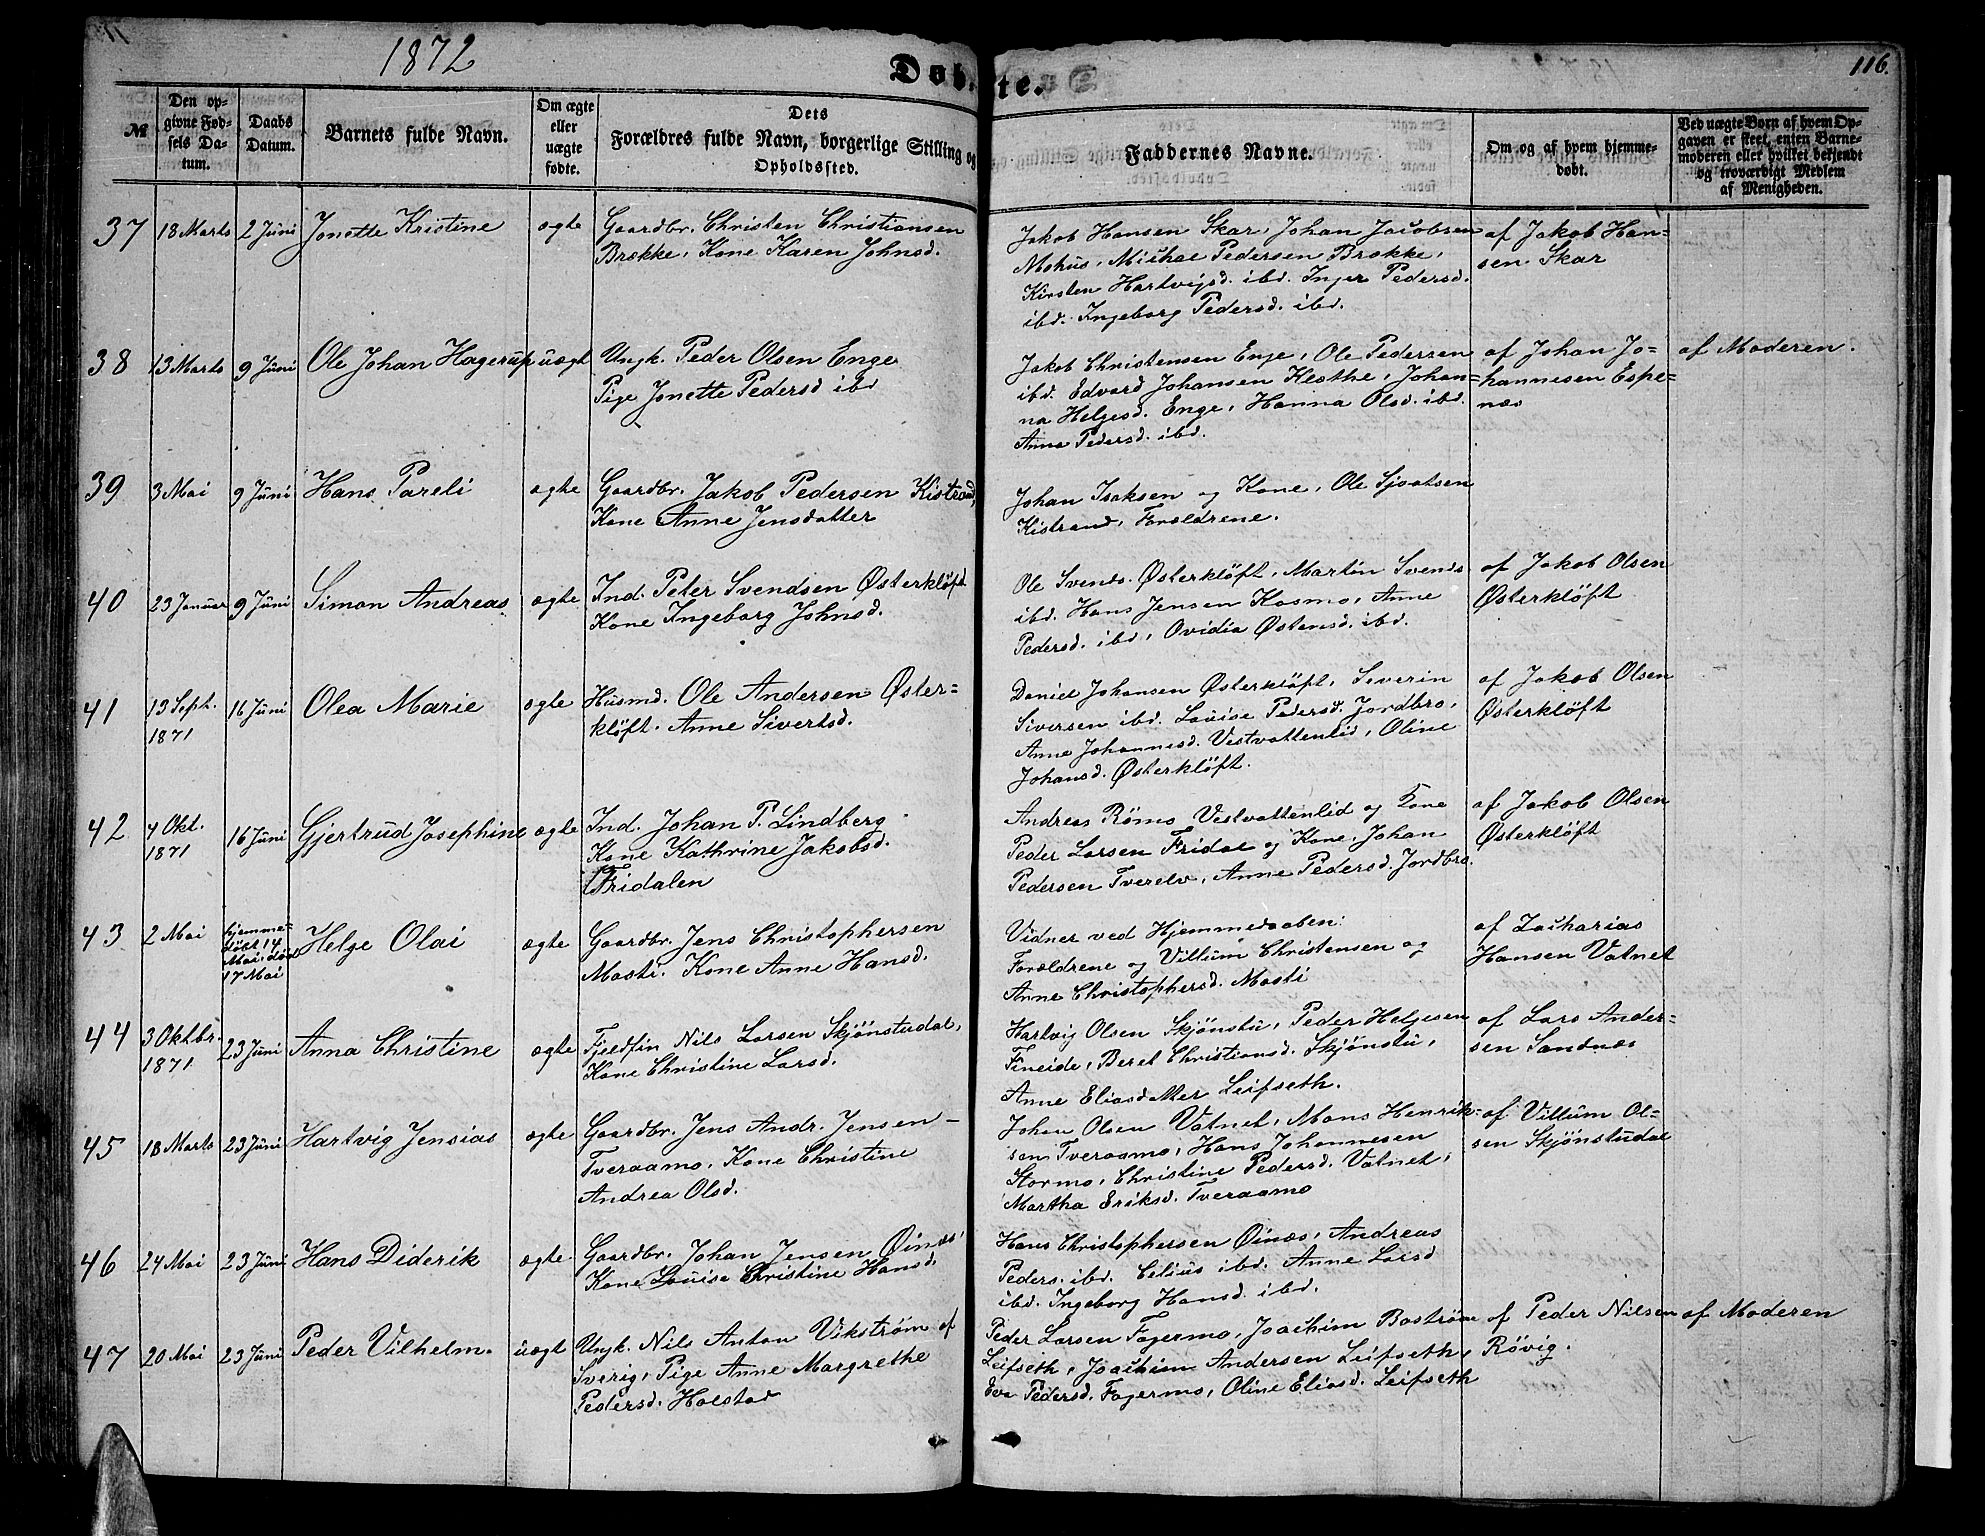 1872
Døbte.
116.
№
Den opgivne Fødsels Datum.
Daabs Datum.
Barnets fulde Navn.
Om ægte eller uægte fødte.
Dets Forældres fulde Navn, borgerlige Stilling og Opholdssted.
Faddernes Navne.
Om og af hvem hjemmedøbt.
Ved uægte Børn af hvem Opgaven er skeet, enten Barnemoderen eller hvilket bekjendt og troværdigt Medlem af Menigheden.
37 18 Marts 2 Juni Jonette Kristine ægte
Gaardbr. Christen Christiansen
Brække, Kone Karen Johnsd.
Jakob Hansen Skar, Johan Jacobsen
Mohus, Michae Pedersen Brække,
Kirsten Hartvigsd. ibd. Inger Pedersd.
ibd. Ingeborg Pedersd. ibd.
af Jakob Han=
sen Skar
38 13 Marts 9 Juni Ole Johan Hagerup uægt
Ungk. Peder Olsen Enge
Pige Jonette Pedersd ibd
Jakob Christensen Enge, Ole Pedersen
ibd. Edvard Johansen Kløthe, Johan=
na Helgesd. Enge, Hanna Olsd. ibd.
Anna Pedersd. ibd.
af Johan Jo=
hannesen Espe=
næs
af Moderen.
39 3 Mai 9 Juni Hans Pareli ægte
Gaardbr. Jakob Pedersen Kistrand,
Kone Anne Jensdatter
Johan Isaksen og Kone, Ole Sjvatsen
Kistrand, Forældrene.
40 23 Januar 9 Juni Simon Andreas ægte
Ind. Peter Svendsen Østerkløft
Kone Ingeborg Johnsd.
Ole Svends. Østerkløft, Martin Svends
ibd. Hans Jensen Kosmo, Anne
Pedersd. ibd, Ovidia Østensd. ibd.
af Jakob Olsen
Østerkløft
41 13 Sept. 1871 16 Juni Olea Marie ægte
Husmd. Ole Andersen Øster=
kløft. Anne Sivertsd.
Daniel Johansen Østerkløft, Severin
Siversen ibd. Louise Pedersd. Jordbro,
Anne Johannesd. Vestvattenlid, Oline
Johansd. Østerkløft.
af Jakob Olsen
Østerkløft
42 4 Okt. 1871 16 Juni Gjertrud Josephine ægte
Ind. Johan P. Lindberg
Kone Kathrine Jakobsd.
Fridalen
Andreas Rømo Vestvattenlid og Kone
Peder Larsen Fridal og Kone, Johan
Pedersen Tverelv, Anne Pedersd. Jordbro.
af Jakob Olsen
Østerkløft
43 2 Mai hjemme=
døbt 14
Mai. død
17 Mai
Helge Olai ægte
Gaardbr. Jens Christophersen
Mosti. Kone Anne Hansd.
Vidner ved Hjemmedaaben:
Forældrene og Villum Christensen og
Anne Christophersd. Mosti
af Zacharias
Hansen Vatnet
44 3 Oktbr. 1871 23 Juni Anna Christine ægte
Fjeldfin Nils Larsen Skjønstudal,
Kone Christine Larsd.
Hartvig Olsen Skjønstu, Peder Helgesen
Fineide, Beret Christiansd. Skjønstu,
Anne Eliasdatter Leifseth.
af Lars Ander=
sen Sandnæs
45 18 Marts 23 Juni Hartvig Jensias ægte
Gaardbr. Jens Andr. Jensen -
Tveraamo, Kone Christine
Andrea Olsd.
Johan Olsen Vatnet, Mons Henrik=
sen Tveraamo, Hans Johannesen
Stormo, Christine Pedersd. Vatnet,
Martha Eriksd. Tveraamo
af Villum Ol=
sen Skjønstudal
46 24 Mai 23 Juni Hans Diderik ægte
Gaardbr. Johan Jensen Øinæs,
Kone Louise Christine Hansd.
Hans Christophersen Øinæs, Andreas
Peders. ibd. Celius ibd. Anne Larsd
ibd. Ingeborg Hansd. ibd.
47 20 Mai 23 Juni Peder Vilhelm. uægt
Ungk. Nils Anton Vikstrøm af
Sverig, Pige Anne Margrethe
Pedersd. Holstad
Peder Larsen Fagermo, Joachim Bostrøm
Leifseth, Joachim Andersen Leifseth,
Eva Pedersd. Fagermo, Oline Eliasd. Leifseth
af Peder Nilsen
Røvig.
af Moderen